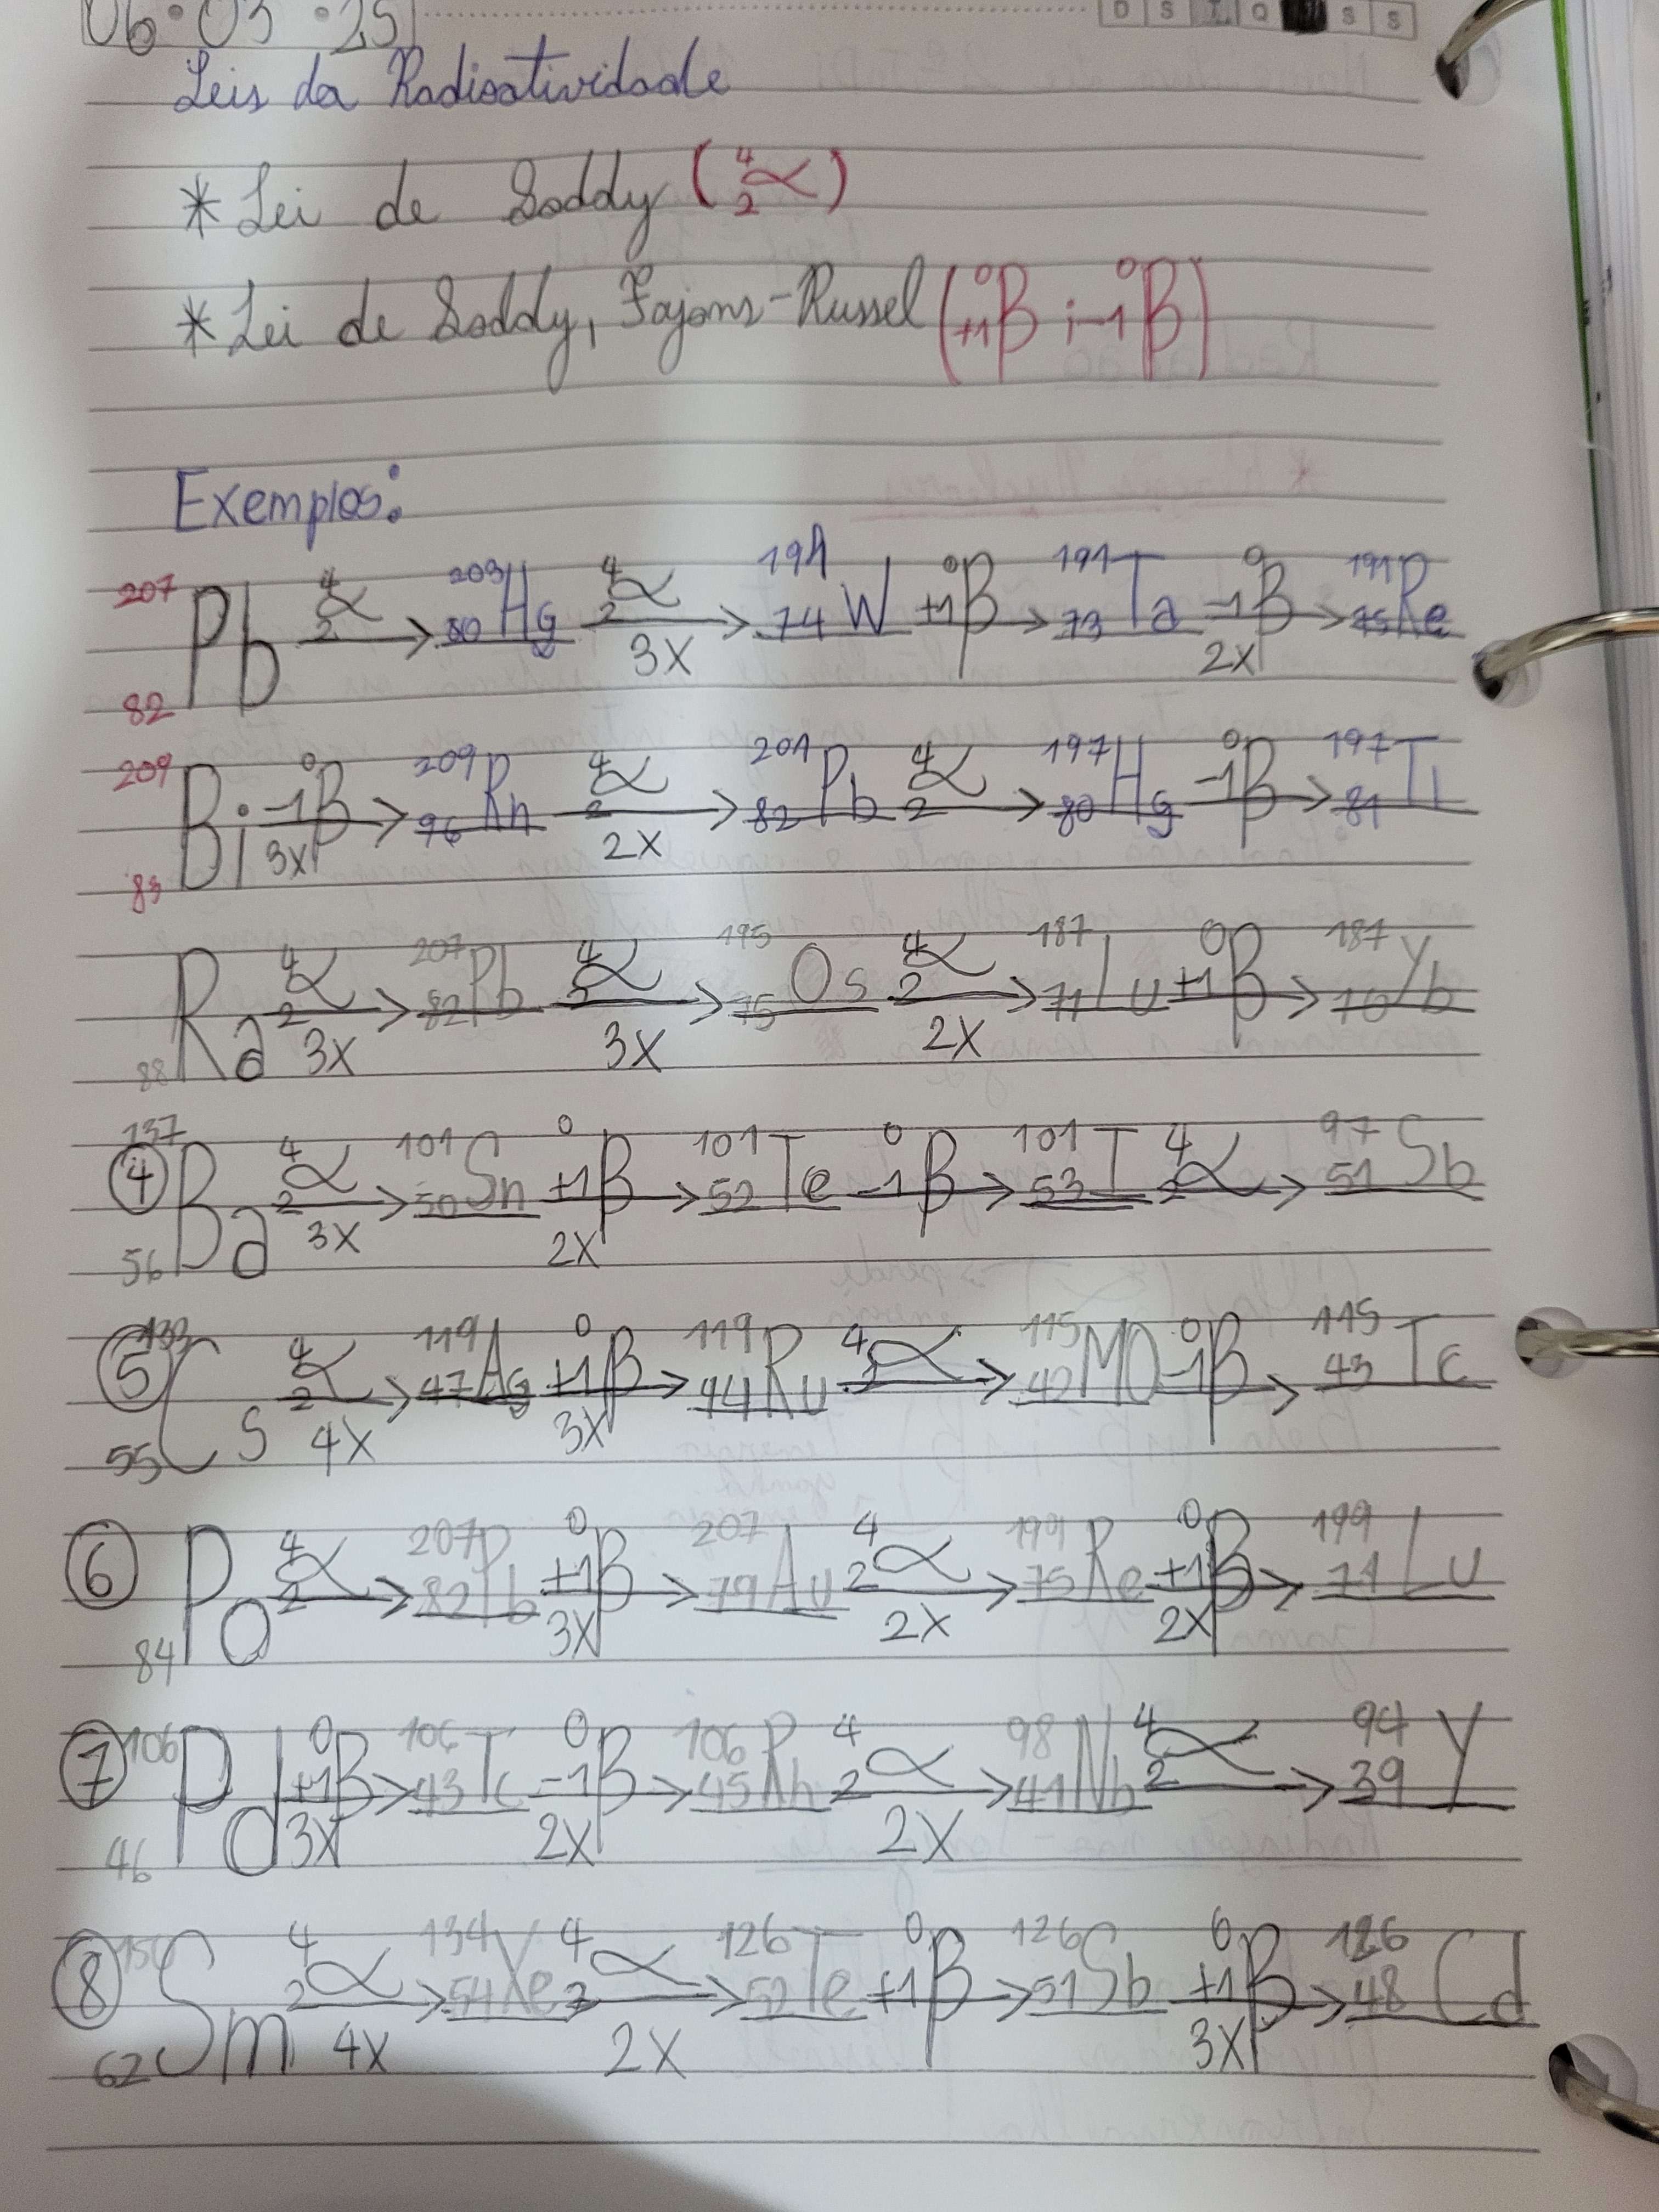 06 . 03 . 25 D S T Q S S
Leis da Radioatividade
* Lei de Soddy ( ⁴₂α )
* Lei de Soddy, Fajans-Russel ( ⁰₊₁β ; ⁰₋₁β )
Exemplos:
²⁰⁷₈₂Pb ⁴₂α → ²⁰³₈₀Hg ⁴₂α 3x → ¹⁹¹₇₄W ⁰₊₁β → ¹⁹¹₇₃Ta ⁰₋₁β 2x → ¹⁹¹₇₅Re
²⁰⁹₈₃Bi ⁰₋₁β 3x → ²⁰⁹₉₆Rn ⁴₂α 2x → ²⁰¹₈₂Pb ⁴₂α → ¹⁹⁷₈₀Hg ⁰₋₁β → ¹⁹⁷₈₁Tl
₈₈Ra ⁴₂α 3x → ²⁰⁷₈₂Pb ⁴₂α 3x → ¹⁹⁵₇₅Os ⁴₂α 2x → ¹⁸⁷₇₁Lu ⁰₊₁β → ¹⁸⁷₇₀Yb
④ ¹³⁷₅₆Ba ⁴₂α 3x → ¹⁰¹₅₀Sn ⁰₊₁β 2x → ¹⁰¹₅₂Te ⁰₋₁β → ¹⁰¹₅₃I ⁴₂α → ⁹⁷₅₁Sb
⑤ ¹³³₅₅Cs ⁴₂α 4x → ¹¹⁹₄₇Ag ⁰₊₁β 3x → ¹¹⁹₄₄Ru ⁴₂α → ¹¹⁵₄₂MO ⁰₋₁β → ¹¹⁵₄₃Tc
⑥ ₈₄Po ⁴₂α → ²⁰⁷₈₂Pb ⁰₊₁β 3x → ²⁰⁷₇₉Au ⁴₂α 2x → ¹⁹⁹₇₅Re ⁰₊₁β 2x → ¹⁹⁹₇₁Lu
⑦ ¹⁰⁶₄₆Pd ⁰₊₁β 3x → ¹⁰⁶₄₃Tc ⁰₋₁β 2x → ¹⁰⁶₄₅Rh ⁴₂α 2x → ⁹⁸₄₁Nb ⁴₂α → ⁹⁴₃₉Y
⑧ ¹⁵⁰₆₂Sm ⁴₂α 4x → ¹³⁴₅₄Xe ⁴₂α 2x → ¹²⁶₅₂Te ⁰₊₁β → ¹²⁶₅₁Sb ⁰₊₁β 3x → ¹²⁶₄₈Cd